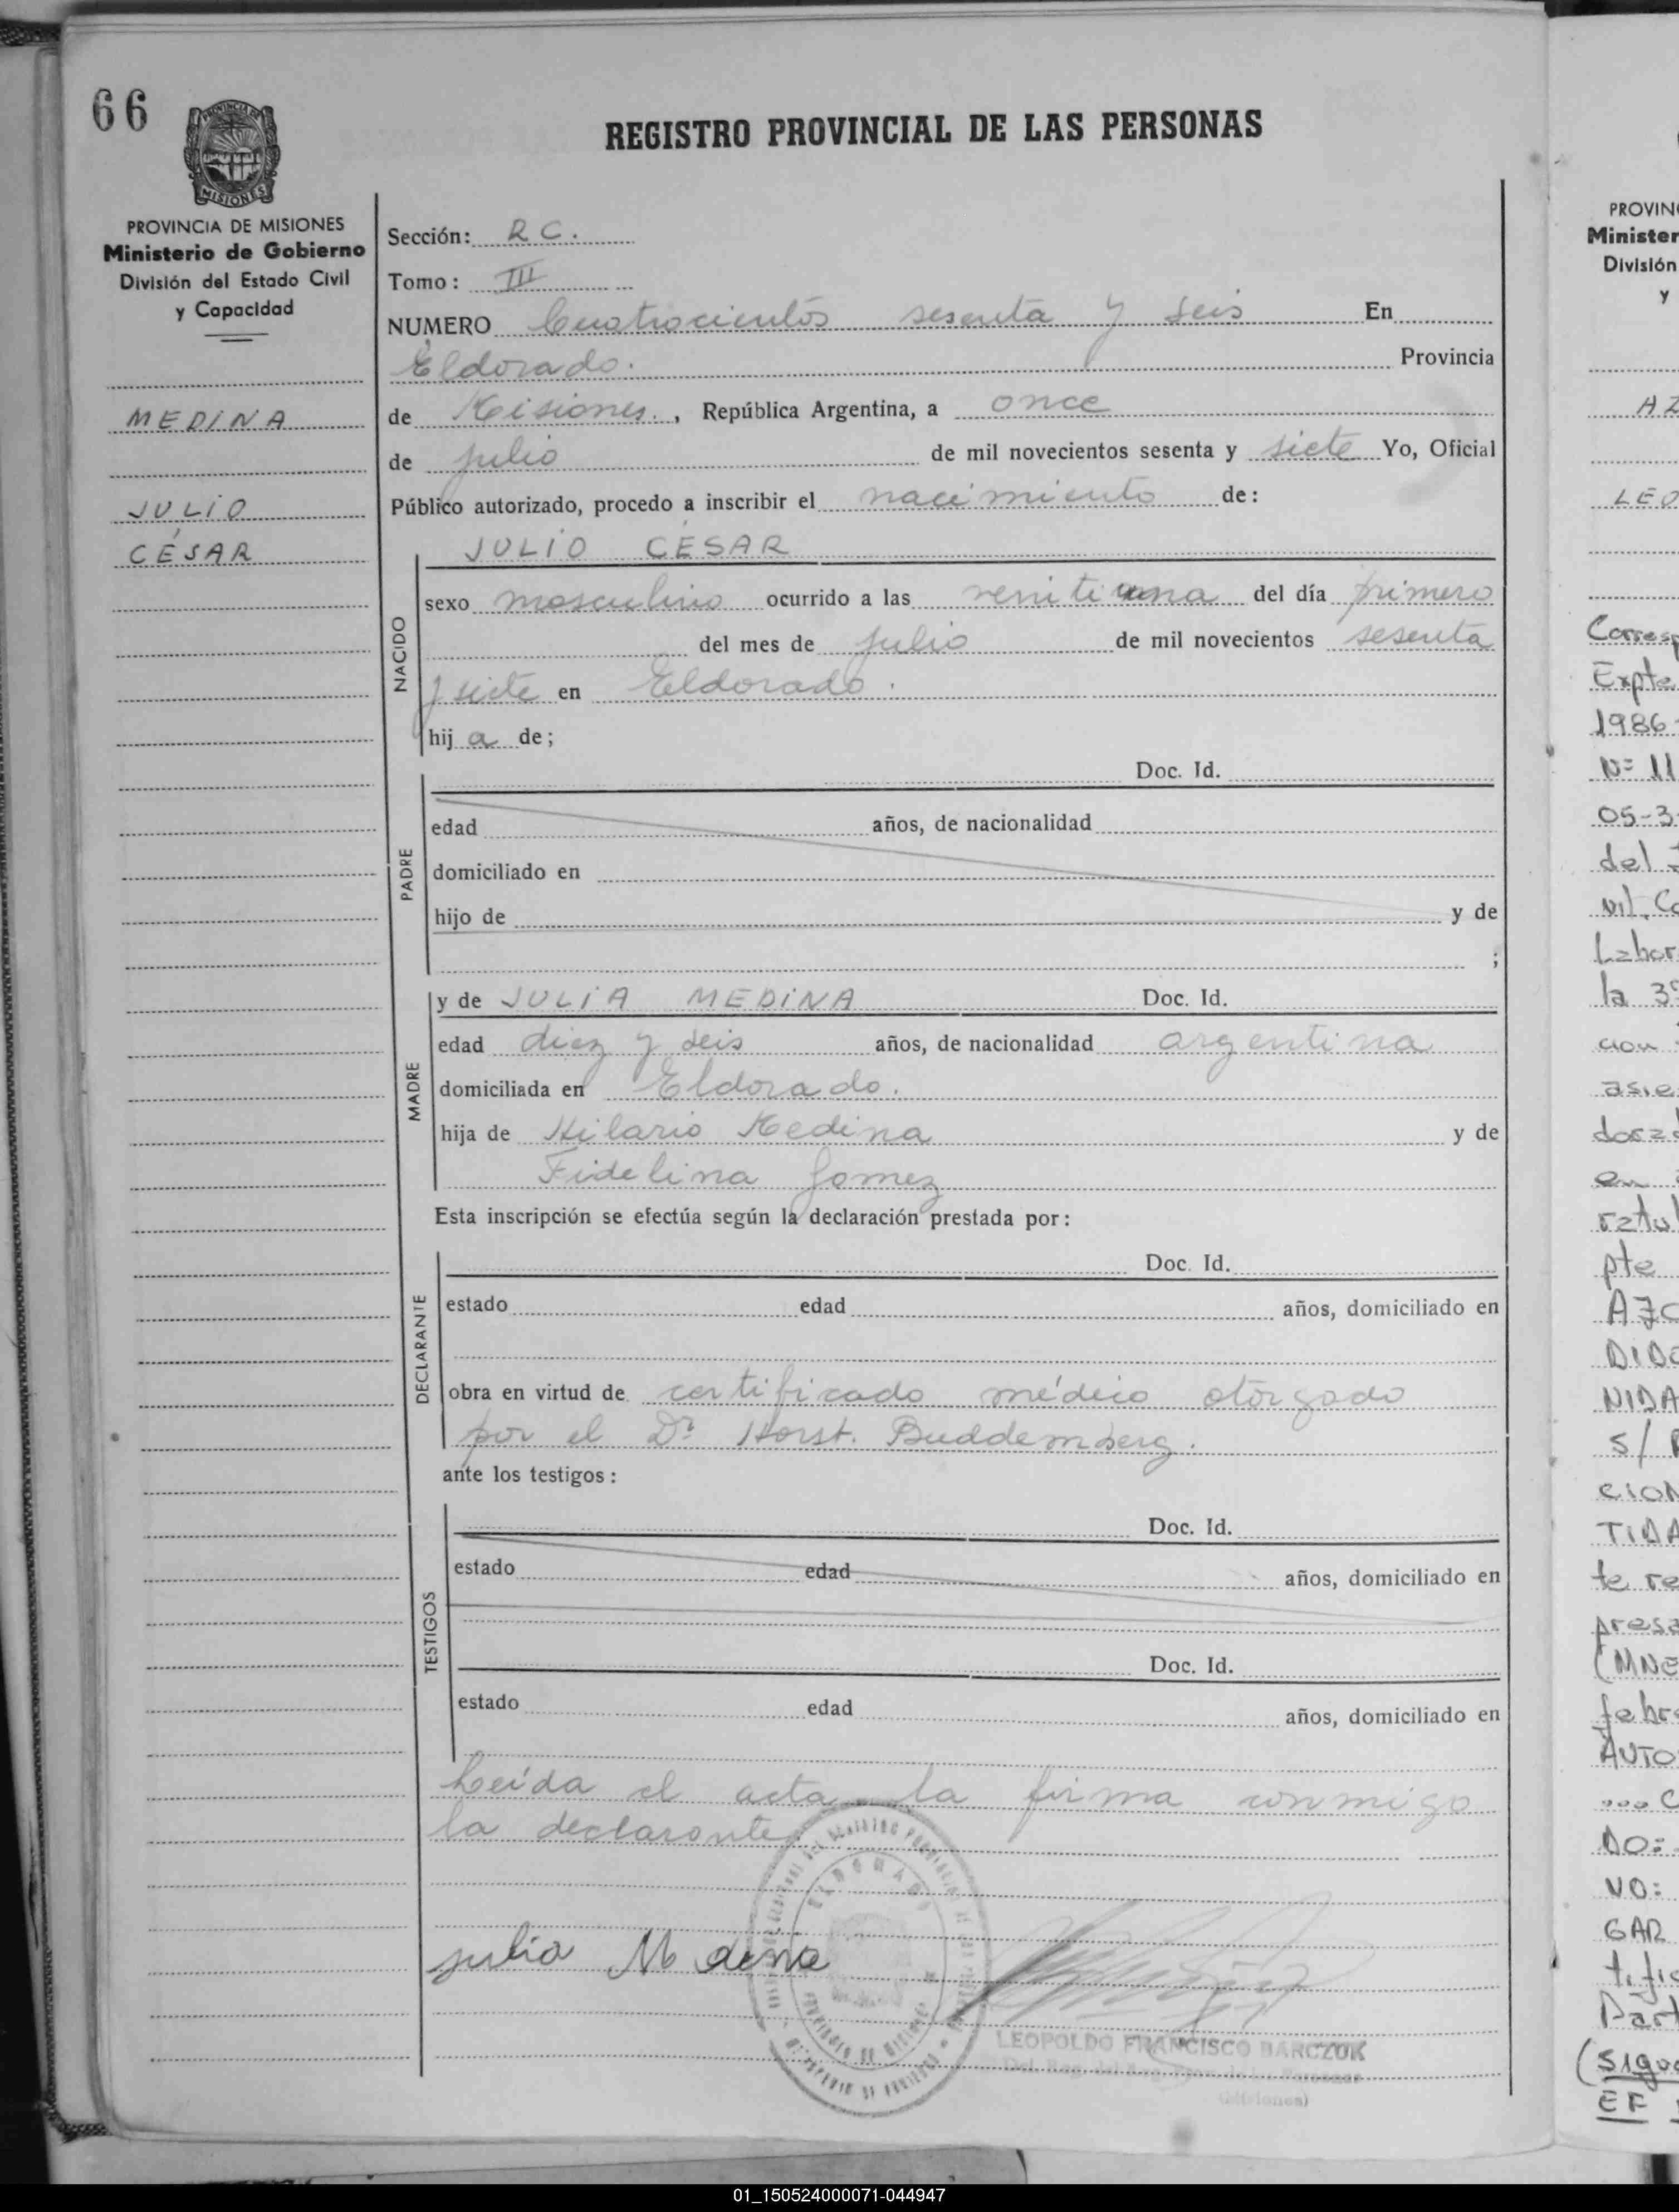 66
PROVINCIA DE
MISIONES
REGISTRO PROVINCIAL DE LAS PERSONAS
PROVINCIA DE MISIONES
Ministerio de Gobierno
División del Estado Civil
y Capacidad
MEDINA
JULIO
CÉSAR
Sección: R C.
Tomo: III
NUMERO Cuatrocientos sesenta y seis En
Eldorado. Provincia
de Misiones., República Argentina, a once
de julio de mil novecientos sesenta y siete Yo, Oficial
Público autorizado, procedo a inscribir el nacimiento de:
JULIO CÉSAR
NACIDO
sexo masculino ocurrido a las del día primero
del mes de julio de mil novecientos sesenta
y siete en Eldorado.
hij a de;
PADRE
Doc. Id.
edad años, de nacionalidad
domiciliado en
hijo de y de
;
MADRE
y de JULIA MEDINA Doc. Id.
edad diez y seis años, de nacionalidad argentina
domiciliada en Eldorado.
hija de Hilario Medina y de
Fidelina Gomez
Esta inscripción se efectúa según la declaración prestada por:
DECLARANTE
Doc. Id.
estado edad años, domiciliado en
obra en virtud de certificado médico otorgado
por el Dr Horst. Buddemberg.
ante los testigos:
TESTIGOS
Doc. Id.
estado edad años, domiciliado en
Doc. Id.
estado edad años, domiciliado en
Leída el acta la firma conmigo
la declarante
Julia Medina
ELDORADO
PROVINCIA DE MISIONES
LEOPOLDO FRANCISCO BARCZUK
(Misiones)
PROVIN
Minister
División
y
AZ
LEO
Corresp
Expte
1986
Nº 11
05-3
del
vil, Co
Labor
la 3º
cion
asie
en
pte
DIDO
NIDA
s/
CION
TIDA
te re
presa
(MNE
febr
AUTO
... C
DO:
VO:
GAR
tific
Part
(sigue
EF
01_150524000071-044947